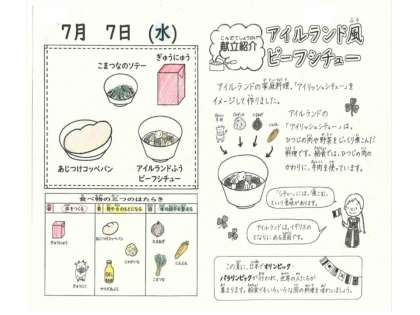 7月 7日 (水)
ぎゅうにゅう
こまつなのソテー
あじつけコッペパン
アイルランドふう
ビーフシチュー
食べ物の三つのはたらき
ぎゅうにゅう
あじつけコッペパン
こんだてしょうかい
献立紹介
アイルランド風
ビーフシチュー
アイルランドの家庭料理、「アイリッシュシチュー」を
イメージして作りました。
アイルランドの
「アイリッシュシチュー」は、
ひつじの肉や野菜をじっくり煮こんだ
料理です。給食では、ひつじの肉の
かわりに、牛肉を使っています。
「シチュー」には、「煮こむ」
という意味があります。
アイルランドは、イギリスの
となりにある国です。
この夏に、日本でオリンピック
パラリンピックが行われ、世界の人たちが
集まります。給食でもいろいろな国の料理を味わいましょう。